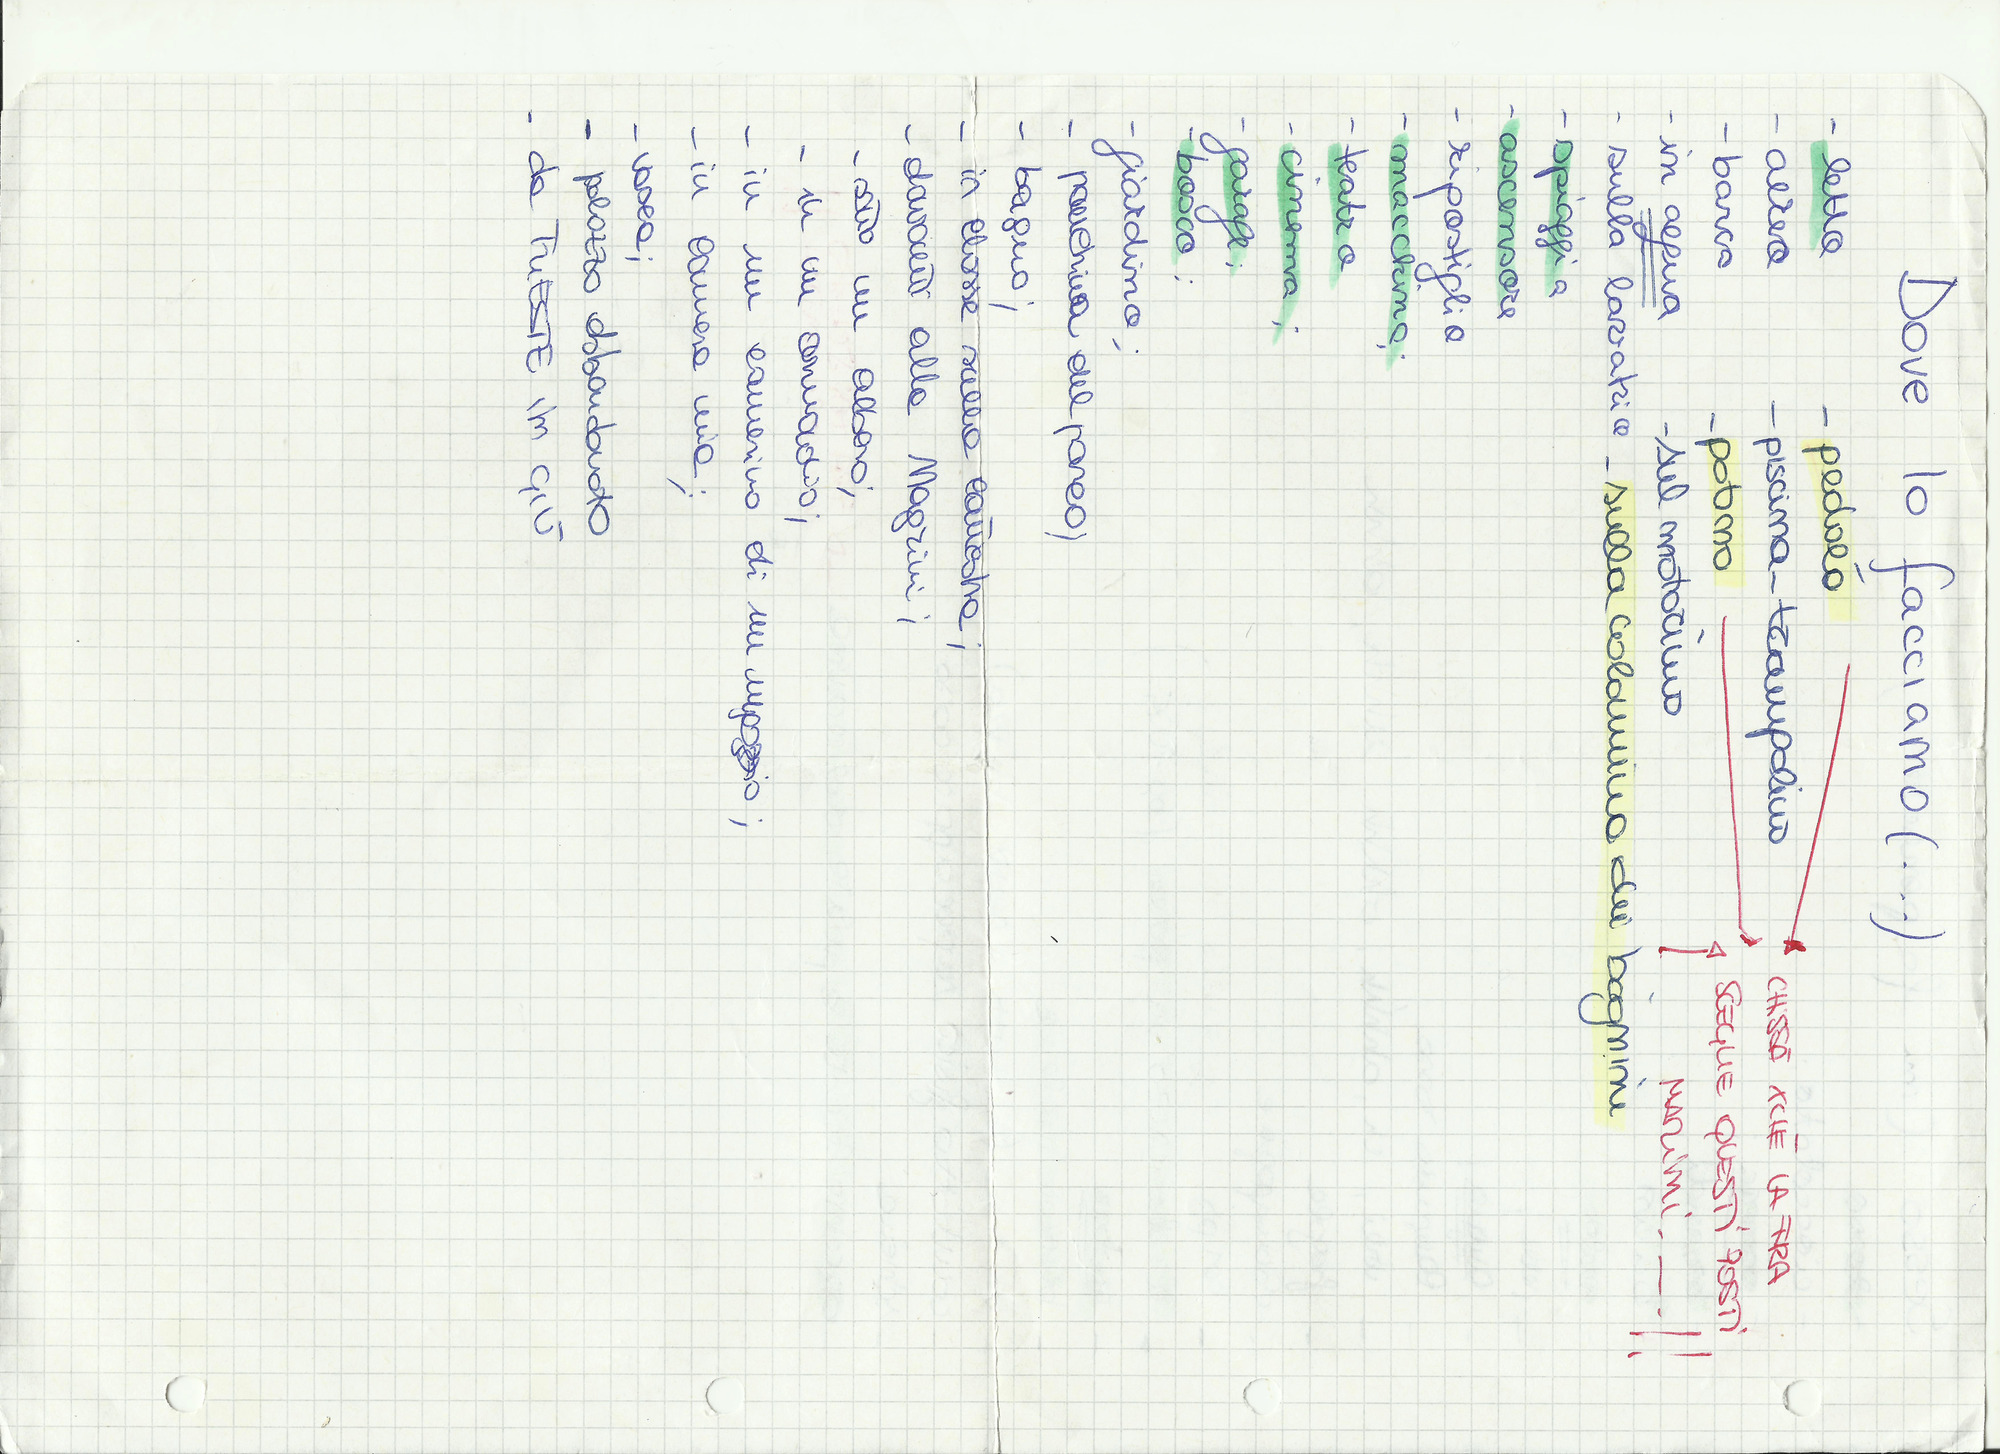 Dove lo facciamo (....)
- letto - pedalò
- aereo - piscina - trampolino
- barca - pattino
- in acqua - sul motorino
- sulla lavatrice - sulla colonnina dei bagnini
- spiaggia
- ascensore
- ripostiglio
- macchina;
- teatro
- cinema;
- garage;
- bosco;
- giardino;
- panchina del parco;
- bagno;
- in classe sulla cattedra;
- davanti alla Magrini;
- sotto un albero;
- in un armadio;
- in un camerino di un negozio;
- in camera mia;
- vasca;
- palazzo abbandonato
- da TRIESTE in GIÙ
CHISSÀ XCHÈ LA
SEGUE QUESTI POSTI
MARINI.__.!!